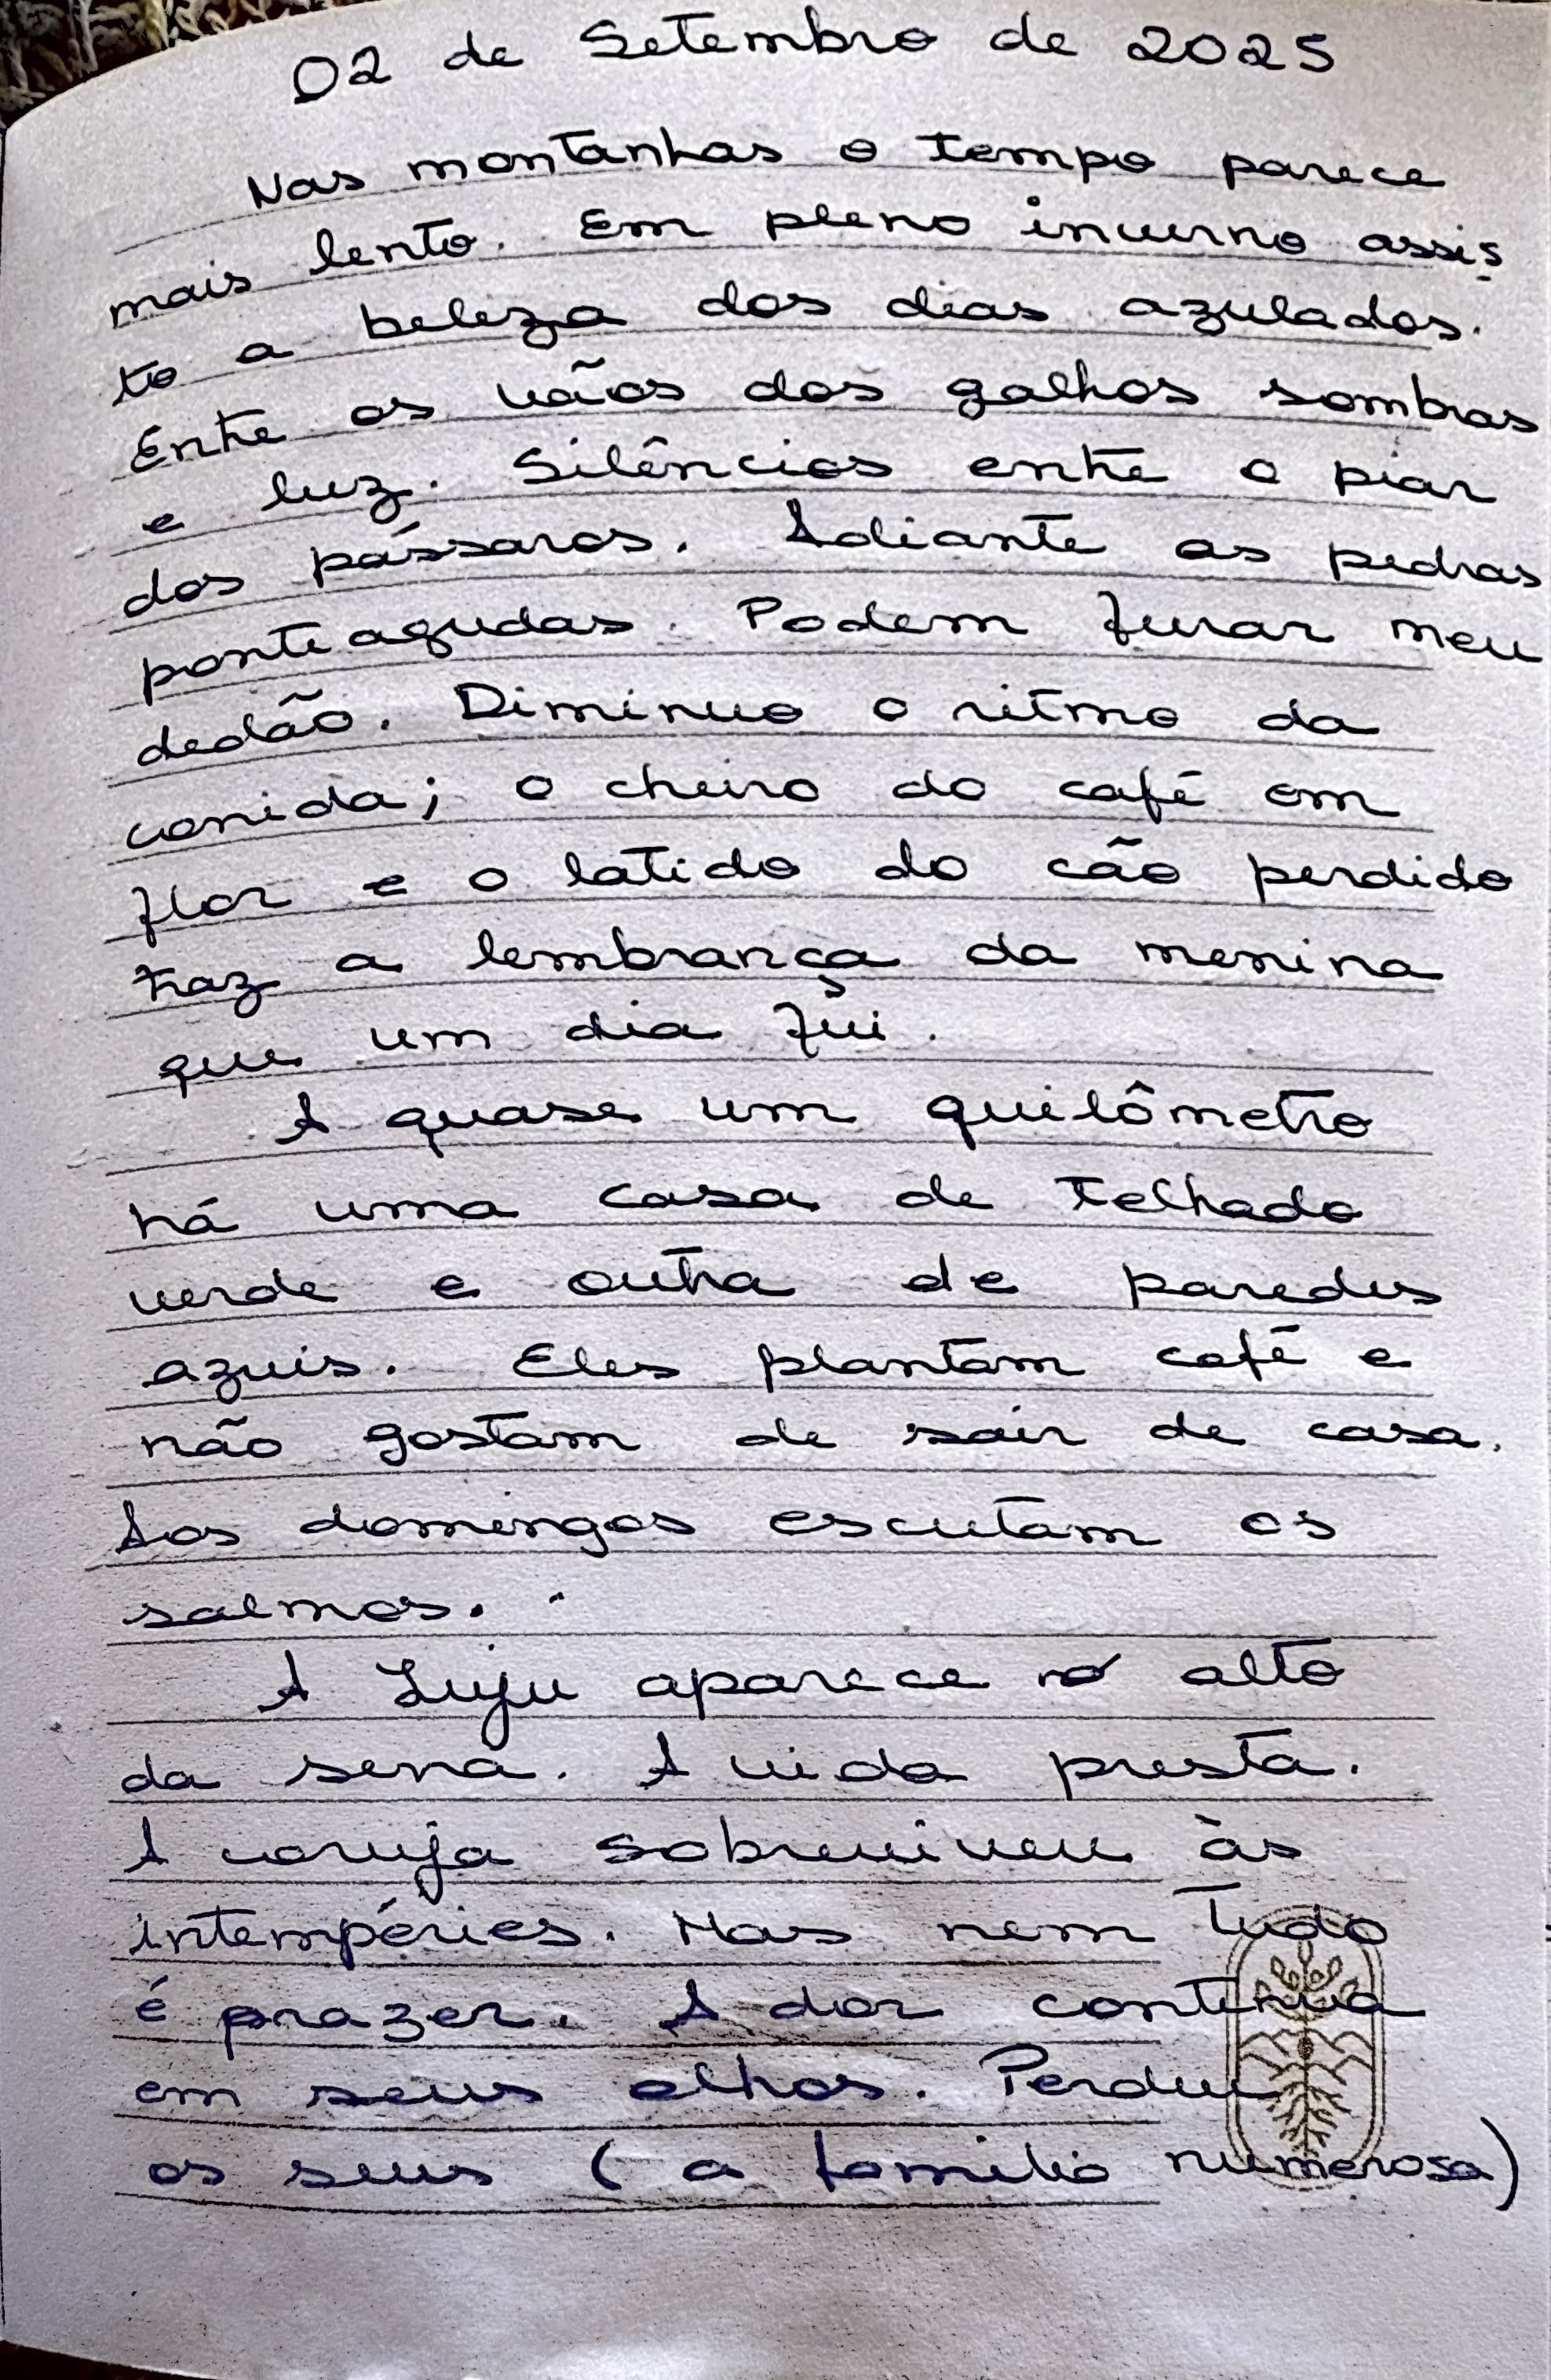 02 de Setembro de 2025
Nas montanhas o tempo parece
mais lento. Em pleno inverno assis
to a beleza dos dias azulados.
Entre os vãos dos galhos sombras
e luz. Silêncios entre o piar
dos pássaros. Adiante as pedras
ponteagudas. Podem furar meu
dedão. Diminuo o ritmo da
corrida; o cheiro do café em
flor e o latido do cão perdido
traz a lembrança da menina
que um dia fui.
A quase um quilômetro
há uma casa de telhado
verde e outra de paredes
azuis. Eles plantam café e
não gostam de sair de casa.
Aos domingos escutam os
salmos.
A Juju aparece no alto
da serra. A vida presta.
A coruja sobreviveu às
intempéries. Mas nem tudo
é prazer. A dor continua
em seus olhos. Perdeu
os seus (a família numerosa)